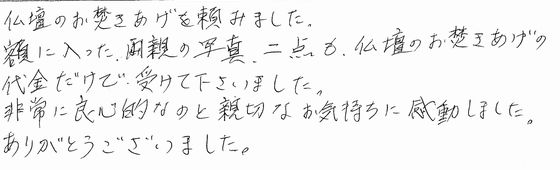 仏壇のお焚きあげを頼みました。
額に入った、両親の写真、二点も、仏壇のお焚きあげの
代金だけで、受けて下さいました。
非常に良心的なのと親切なお気持ちに感動しました。
ありがとうございました。